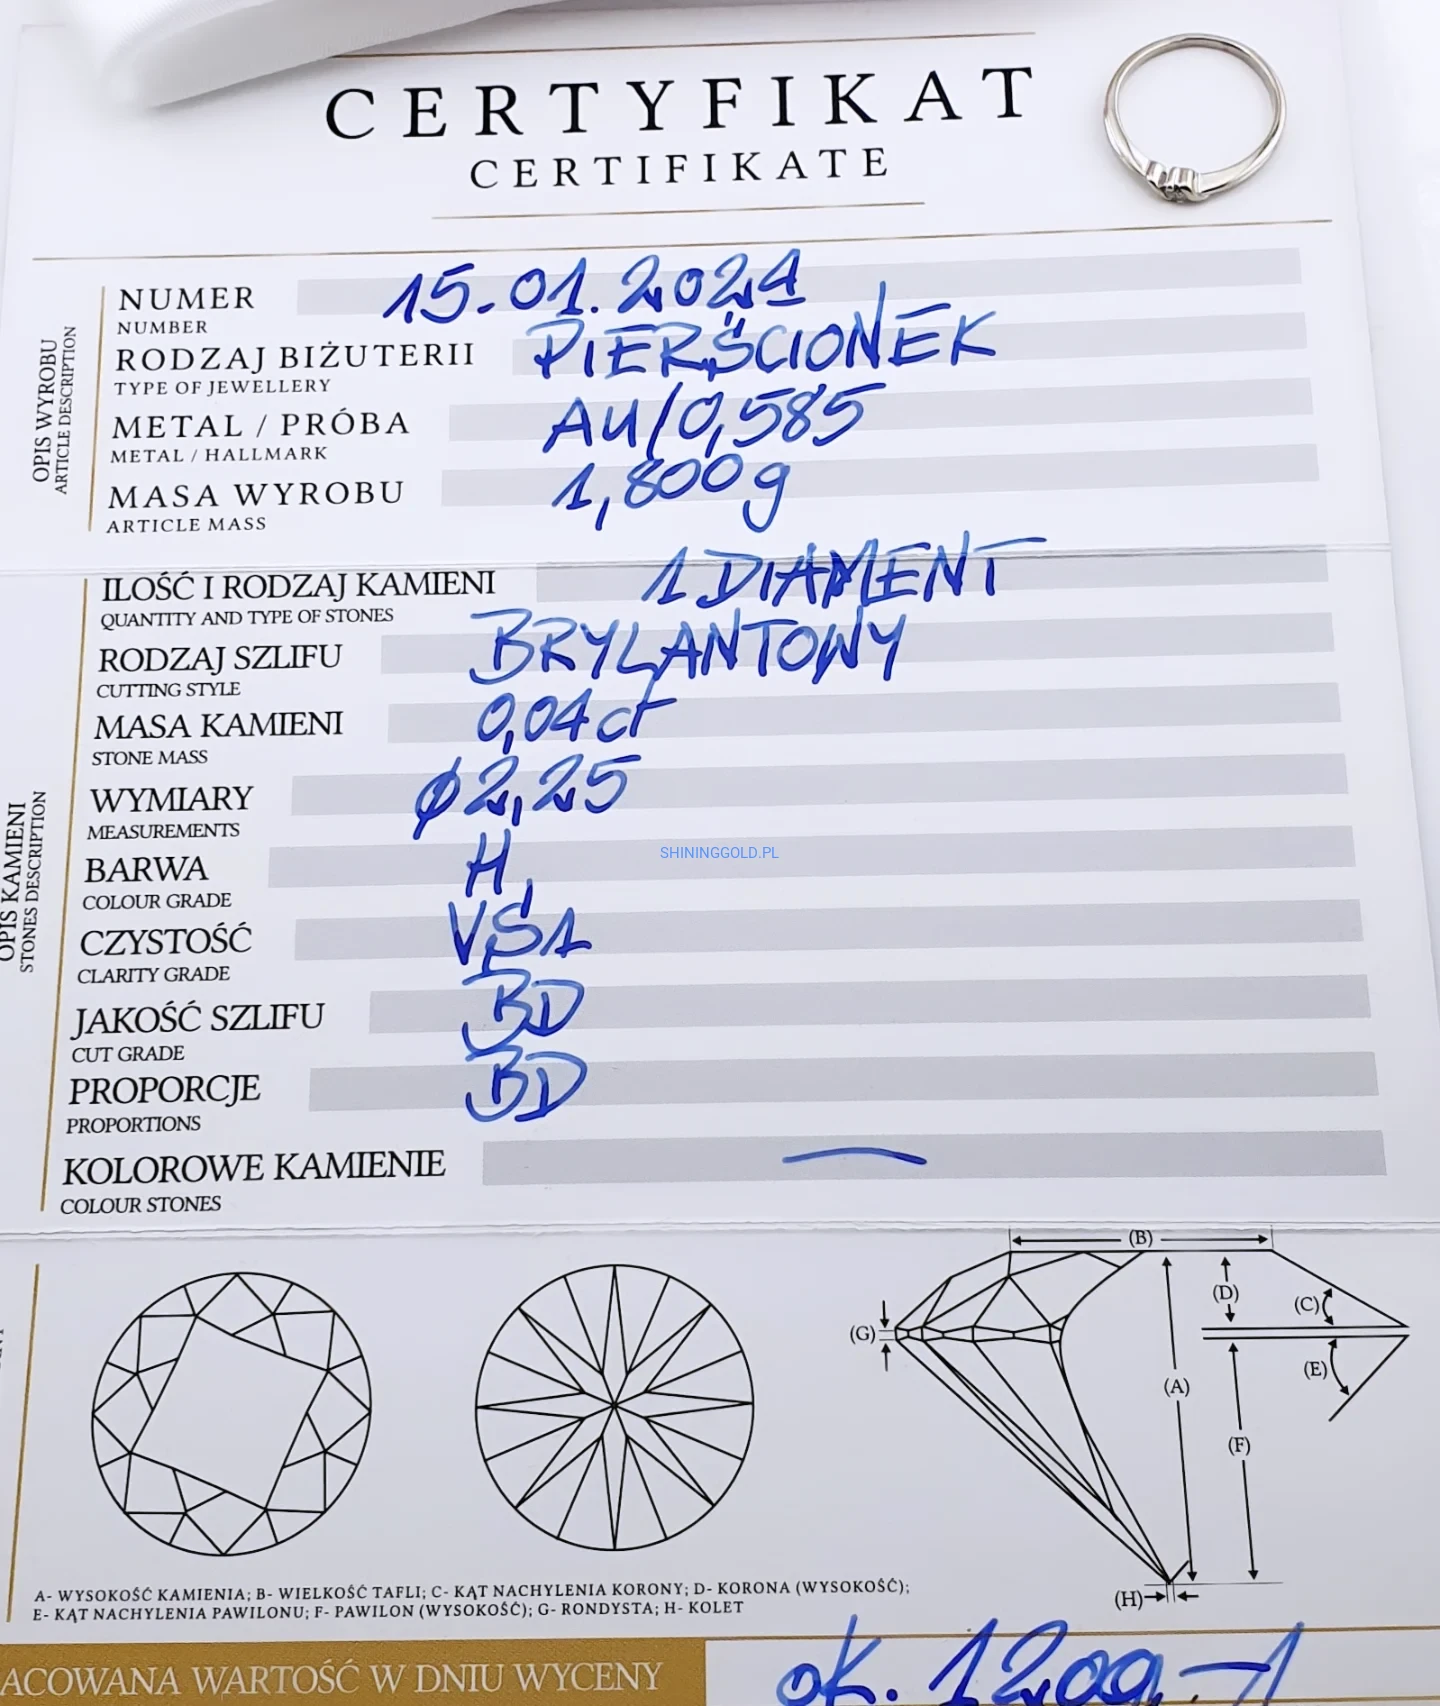 CERTYFIKAT
CERTIFIKATE
OPIS WYROBU
ARTICLE DESCRIPTION
NUMER 15.01.2024
NUMBER
RODZAJ BIŻUTERII PIERŚCIONEK
TYPE OF JEWELLERY
METAL / PRÓBA Au/0,585
METAL / HALLMARK
MASA WYROBU 1,800g
ARTICLE MASS
OPIS KAMIENI
STONES DESCRIPTION
ILOŚĆ I RODZAJ KAMIENI 1 DIAMENT
QUANTITY AND TYPE OF STONES
RODZAJ SZLIFU BRYLANTOWY
CUTTING STYLE
MASA KAMIENI 0,04 ct
STONE MASS
WYMIARY ø2,25
MEASUREMENTS
BARWA H
COLOUR GRADE
SHININGGOLD.PL
CZYSTOŚĆ VS1
CLARITY GRADE
JAKOŚĆ SZLIFU BD
CUT GRADE
PROPORCJE BD
PROPORTIONS
KOLOROWE KAMIENIE —
COLOUR STONES
(B)
(D)
(C)
(G)
(E)
(A)
(F)
(H)
A- WYSOKOŚĆ KAMIENIA; B- WIELKOŚĆ TAFLI; C- KĄT NACHYLENIA KORONY; D- KORONA (WYSOKOŚĆ);
E- KĄT NACHYLENIA PAWILONU; F- PAWILON (WYSOKOŚĆ); G- RONDYSTA; H- KOLET
ACOWANA WARTOŚĆ W DNIU WYCENY ok. 1200,-